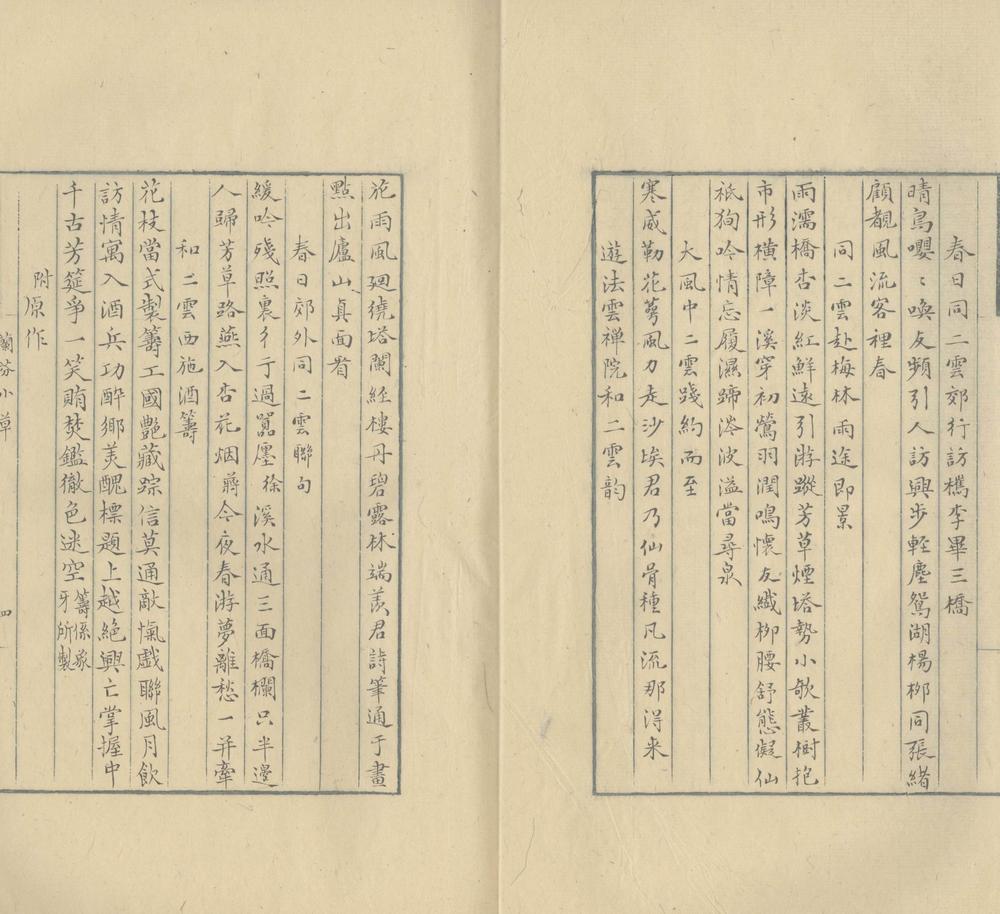 春日同二雲郊行訪檇李畢三橋
晴鳥嚶〻喚友頻引人訪興步軽塵鴛湖楊栁同張緒
顧覩風流客裡春
同二雲赴梅林雨途即景
雨濡橋杏淡紅鮮遠引遊蹤芳草煙塔勢小欹叢樹抱
市形橫障一溪穿初鶯羽潤鳴懷友纖栁腰舒態儗仙
祗狥吟情忘履濕蹄涔波溢當尋泉
大風中二雲踐約而至
寒威勒花蕚風力走沙埃君乃仙骨種凡流那得来
遊法雲禅院和二雲韵
花雨風廻繞塔闌経樓丹碧露林端羡君詩筆通于畫
點出廬山真面看
春日郊外同二雲聯句
緩吟殘照裏彳亍過嚣廛徐溪水通三面橋欄只半邊
人歸芳草路燕入杏花烟蔣今夜春游夢離愁一并牽
和二雲西施酒籌
花枝當式製籌工國艷藏踪信莫通敵愾戲聯風月飲
訪情寓入酒兵功酔鄉美醜標題上越絕興亡掌握中
千古芳筵爭一笑賄焚鑑徹色迷空籌係象牙所製
附原作
蘭芬小草
四